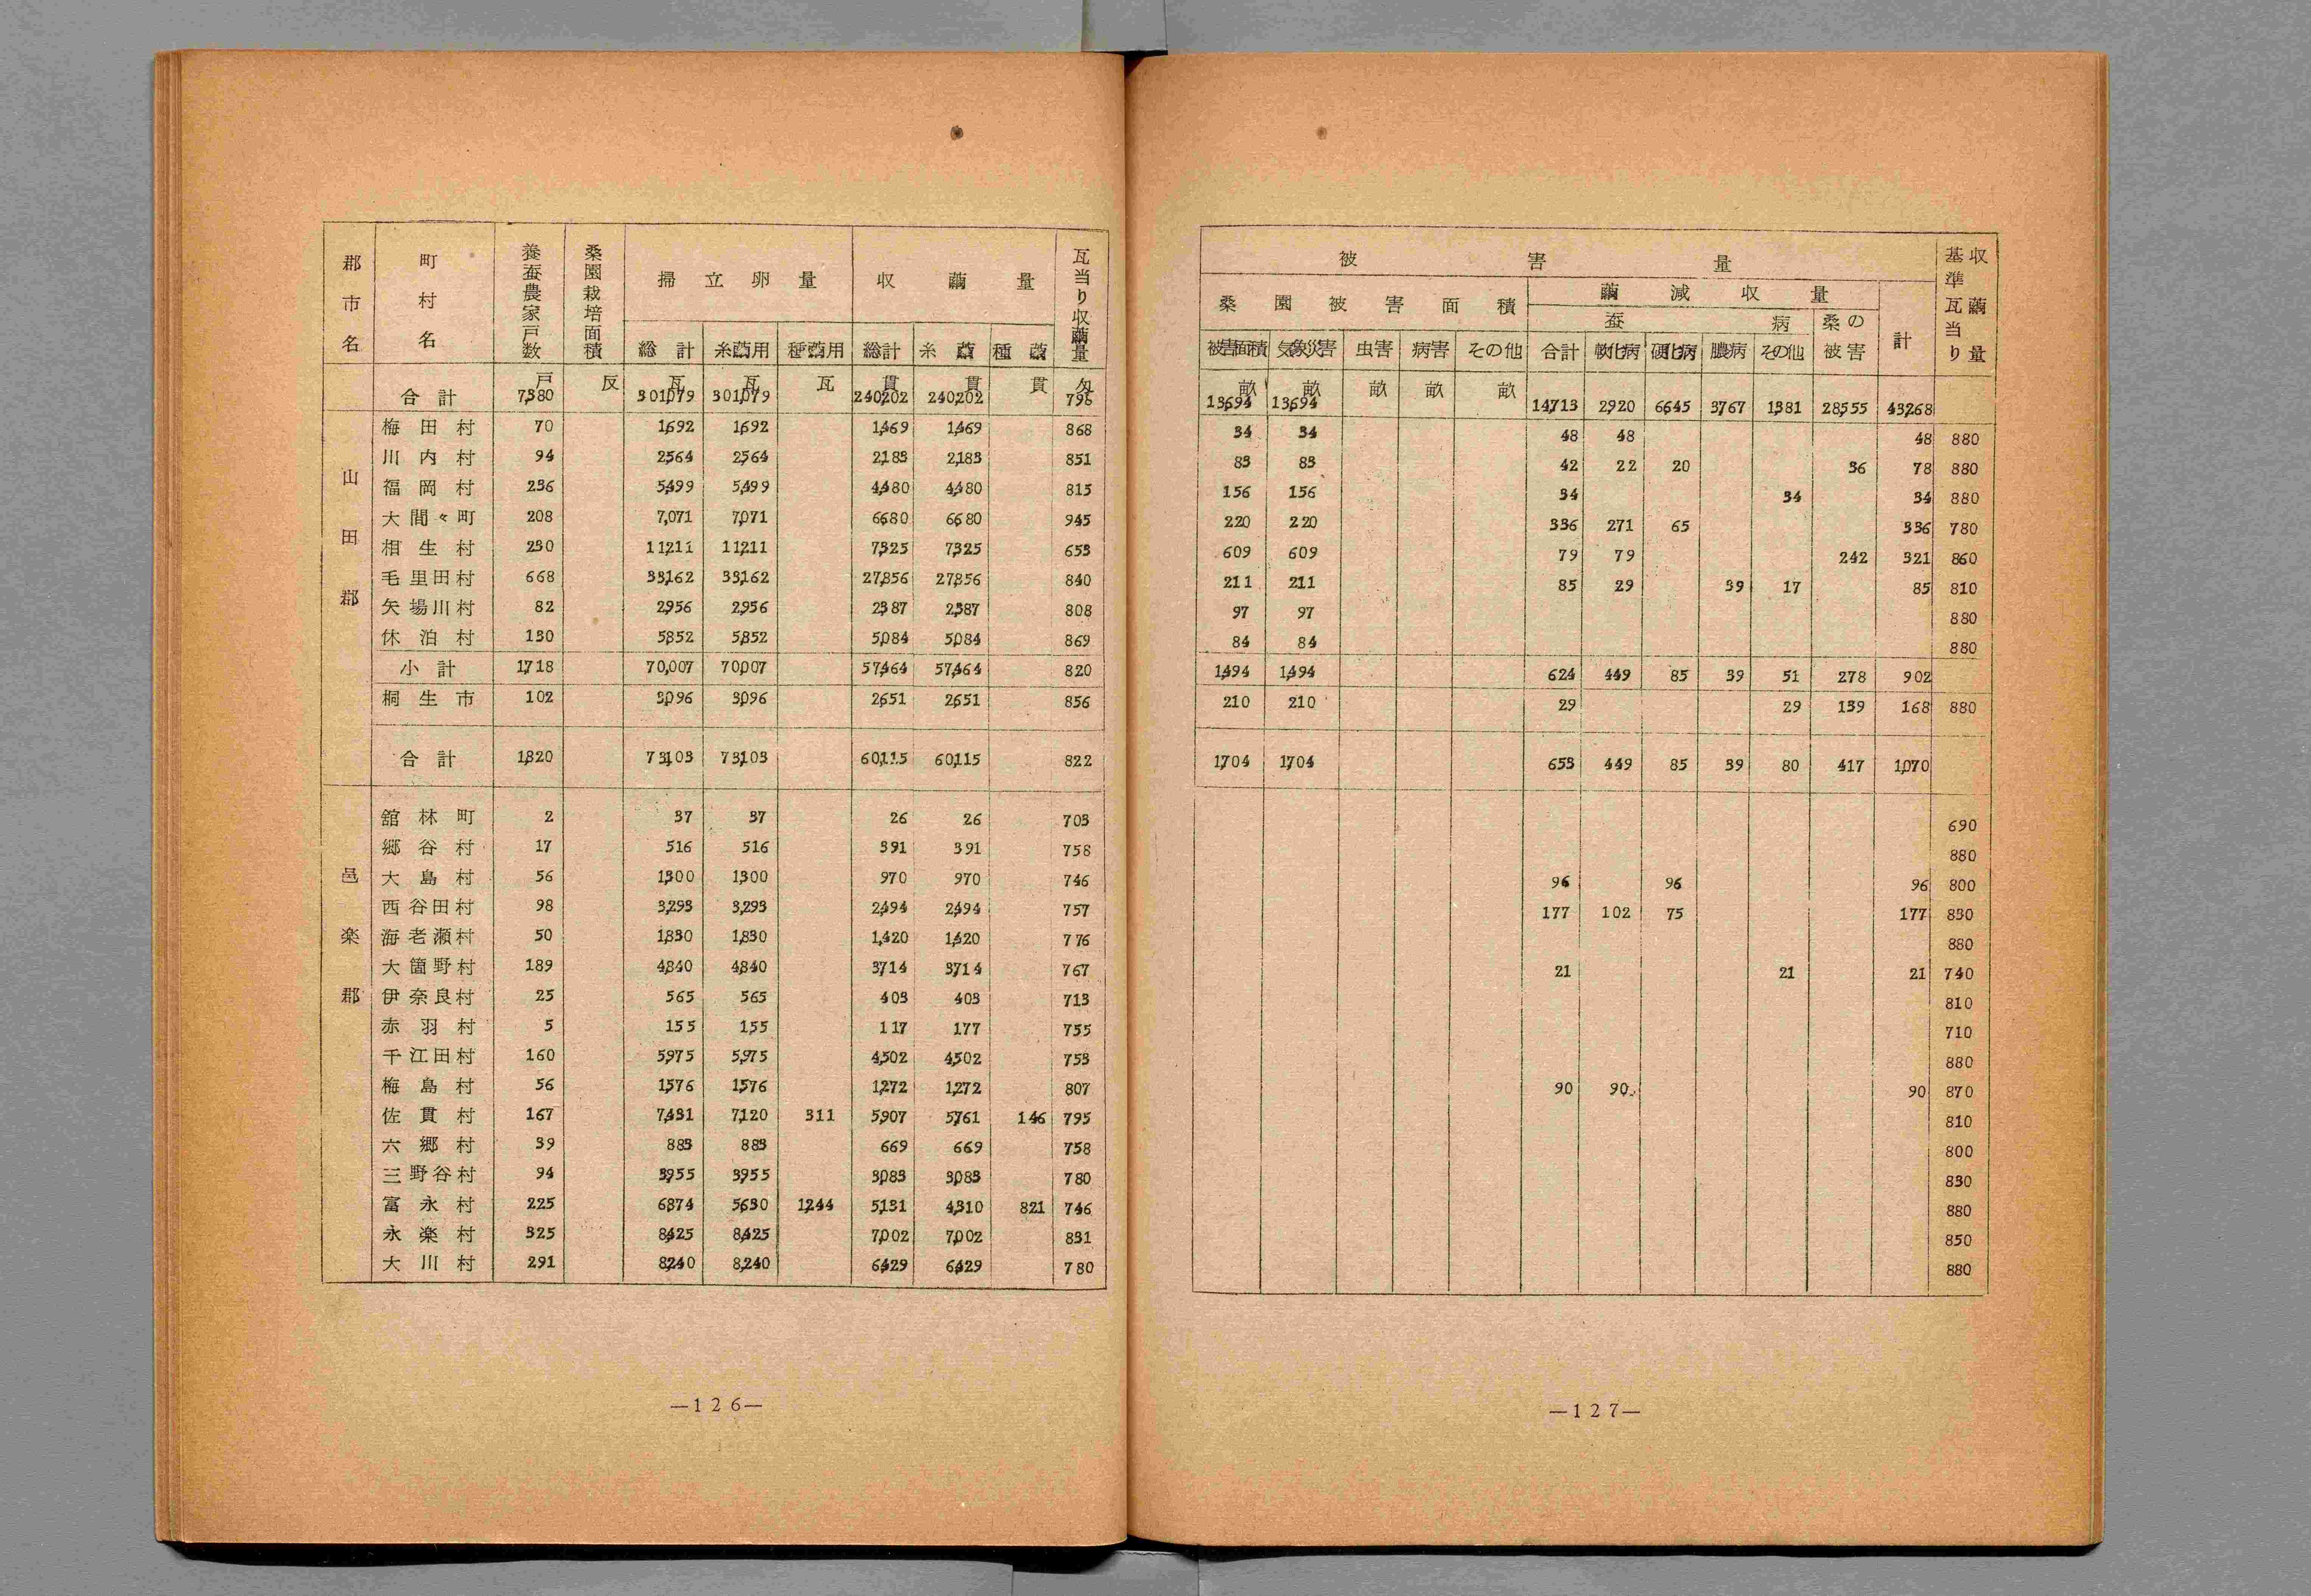 郡市名 町村名 養蚕農家戸数 桑園栽培面積 掃立卵量 収繭量 瓦当り収繭量
総計 糸繭用 種繭用 総計 糸繭 種繭
戸 反 瓦 瓦 瓦 貫 貫 貫 匁
合計 7,380 301,079 301,079 240,202 240,202 796
山田郡
梅田村 70 1,692 1,692 1,469 1,469 868
川内村 94 2,564 2,564 2,183 2,183 851
福岡村 236 5,499 5,499 4,480 4,480 815
大間々町 208 7,071 7,071 6,680 6,680 945
相生村 230 11,211 11,211 7,325 7,325 653
毛里田村 668 33,162 33,162 27,856 27,856 840
矢場川村 82 2,956 2,956 2,387 2,387 808
休泊村 130 5,852 5,852 5,084 5,084 869
小計 1,718 70,007 70,007 57,464 57,464 820
桐生市 102 3,096 3,096 2,651 2,651 856
合計 1,820 73,103 73,103 60,115 60,115 822
邑楽郡
舘林町 2 37 37 26 26 703
郷谷村 17 516 516 391 391 758
大島村 56 1,300 1,300 970 970 746
西谷田村 98 3,293 3,293 2,494 2,494 757
海老瀬村 50 1,830 1,830 1,420 1,420 776
大箇野村 189 4,840 4,840 3,714 3,714 767
伊奈良村 25 565 565 403 403 713
赤羽村 5 155 155 117 177 755
千江田村 160 5,975 5,975 4,502 4,502 753
梅島村 56 1,576 1,576 1,272 1,272 807
佐貫村 167 7,431 7,120 311 5,907 5,761 146 795
六郷村 39 883 883 669 669 758
三野谷村 94 3,955 3,955 3,083 3,083 780
富永村 225 6,874 5,630 1,244 5,131 4,310 821 746
永楽村 325 8,425 8,425 7,002 7,002 831
大川村 291 8,240 8,240 6,429 6,429 780
—126—
被害量 基準瓦当り収繭量
桑園被害面積 繭減収量 計
蚕病 桑の被害
被害面積 気象災害 虫害 病害 その他 合計 軟化病 硬化病 膿病 その他
畝 畝 畝 畝 畝
13,694 13,694 14,713 2,920 6,645 3,767 1,381 28,555 43,268
34 34 48 48 48 880
83 83 42 22 20 36 78 880
156 156 34 34 34 880
220 220 336 271 65 336 780
609 609 79 79 242 321 860
211 211 85 29 39 17 85 810
97 97 880
84 84 880
1,494 1,494 624 449 85 39 51 278 902
210 210 29 29 139 168 880
1,704 1,704 653 449 85 39 80 417 1,070
690
880
96 96 96 800
177 102 75 177 830
880
21 21 21 740
810
710
880
90 90 90 870
810
800
830
880
850
880
—127—